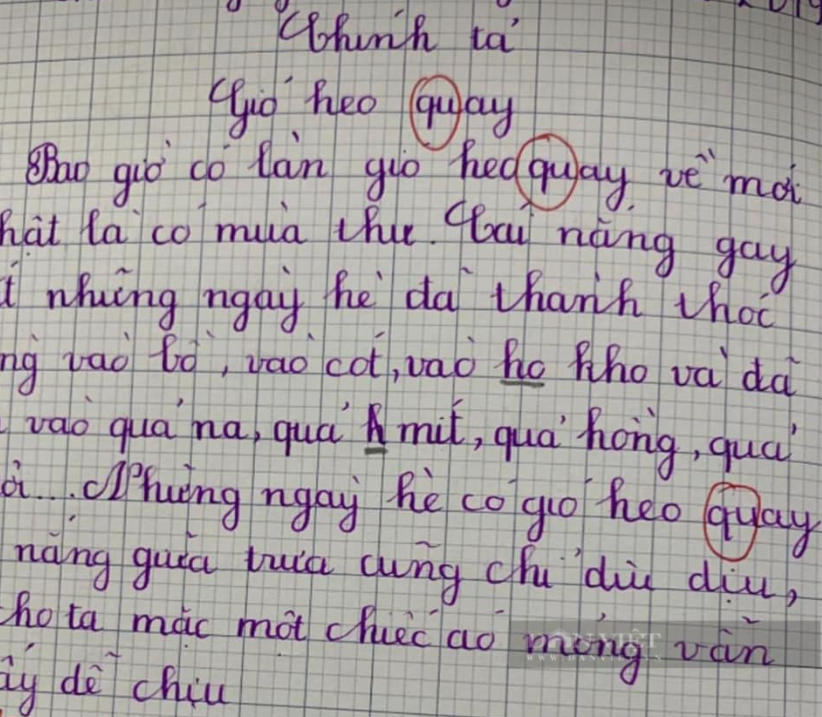 Chính tả
Gió heo quay
Bao giờ có làn gió heo quay về mới
hật là có mùa thu. Cái nắng gay
t những ngày hè đã thành thóc
ng vào bồ, vào cót, vào ho kho và đã
vào quả na, quả h mít, quả hồng, quả
ởi... Những ngày hè có gió heo quay
nắng giữa trưa cũng chỉ dìu dịu,
ho ta mặc một chiếc áo mỏng vẫn
ấy dễ chịu